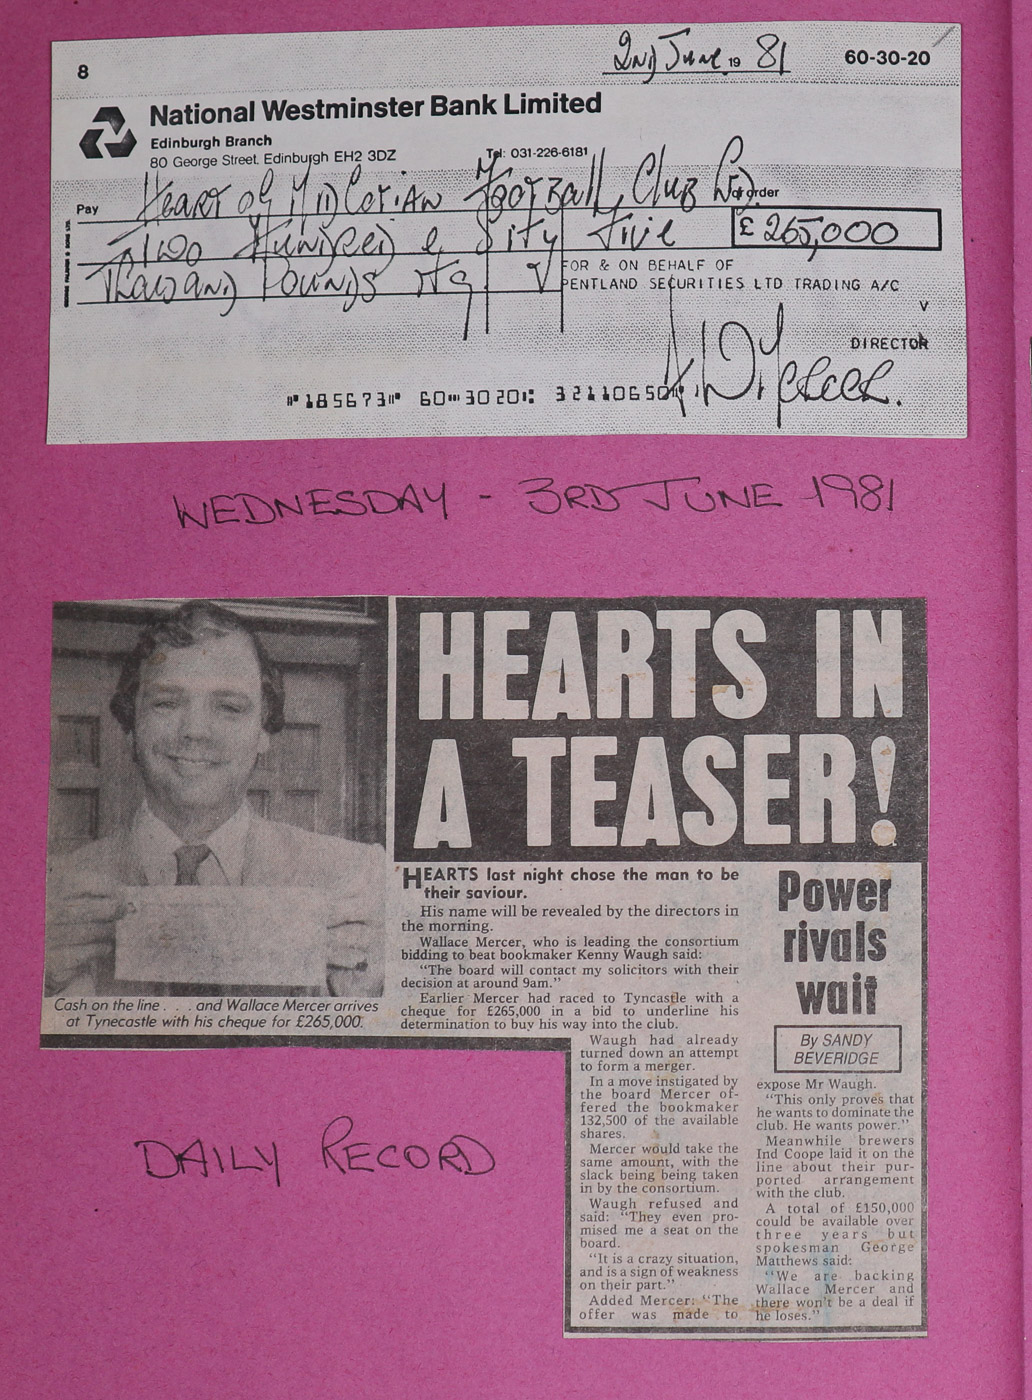 2nd June 19 81
8
60-30-20
National Westminster Bank Limited
Edinburgh Branch
80 George Street, Edinburgh EH2 3DZ
Tel: 031-226-6181
Pay Heart of Midlothian Football Club Ltd. or order
Two Hundred & Sixty Five
£ 265,000
Thousand Pounds
FOR & ON BEHALF OF
PENTLAND SECURITIES LTD TRADING A/C
DIRECTOR
⑈185673⑈ 60⑉3020⑆ 32110650⑈
WEDNESDAY - 3RD JUNE 1981
HEARTS IN
A TEASER!
Cash on the line . . . and Wallace Mercer arrives
at Tynecastle with his cheque for £265,000.
HEARTS last night chose the man to be
their saviour.
His name will be revealed by the directors in
the morning.
Wallace Mercer, who is leading the consortium
bidding to beat bookmaker Kenny Waugh said:
"The board will contact my solicitors with their
decision at around 9am."
Earlier Mercer had raced to Tyncastle with a
cheque for £265,000 in a bid to underline his
determination to buy his way into the club.
Waugh had already
turned down an attempt
to form a merger.
In a move instigated by
the board Mercer of-
fered the bookmaker
132,500 of the available
shares.
Mercer would take the
same amount, with the
slack being being taken
in by the consortium.
Waugh refused and
said: "They even pro-
mised me a seat on the
board.
"It is a crazy situation,
and is a sign of weakness
on their part."
Added Mercer: "The
offer was made to
Power
rivals
wait
By SANDY
BEVERIDGE
expose Mr Waugh.
"This only proves that
he wants to dominate the
club. He wants power."
Meanwhile brewers
Ind Coope laid it on the
line about their pur-
ported arrangement
with the club.
A total of £150,000
could be available over
three years but
spokesman George
Matthews said:
"We are backing
Wallace Mercer and
there won't be a deal if
he loses."
DAILY RECORD